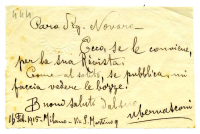 Caro Sig. Novaro -
Eccole, se le conviene,
per la sua Rivista.
Come al solito, se pubblica, mi
faccia vedere le bozze!
Buoni saluti dal suo
U Bernasconi
16 Feb. 1915 - Milano - Via S. Martino 9